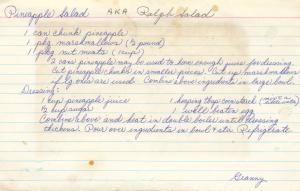 Pineapple Salad AKA Ralph Salad
1 can chunk pineapple
1 pkg. marshmallows (½ pound)
1 pkg nut meats (1 cup)
2 cans pineapple may be used to have enough juice for dressing.
Cut pineapple chunks in smaller pieces. Cut up marshmallows
if big ones are used. Combine above ingredients in large bowl.
Dressing:
1 cup pineapple juice 1 heaping tbsp corn starch
½ cup sugar 1 well beaten egg
Combine above and heat in double boiler until dressing
thickens. Pour over ingredients in bowl & stir. Refrigerate
Granny